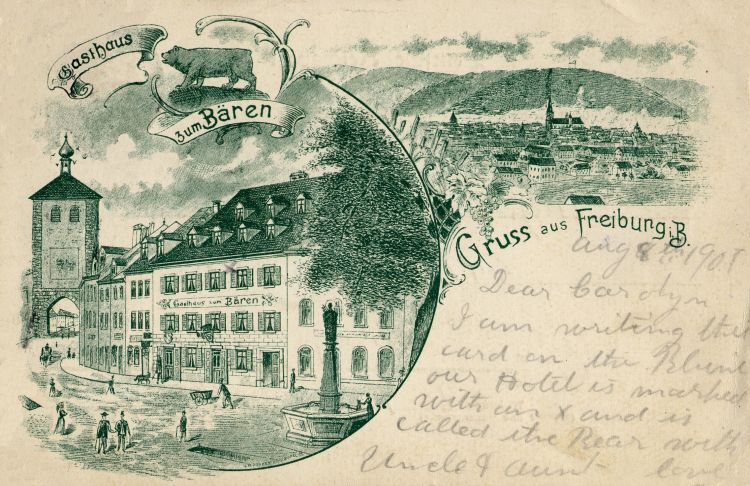 Gasthaus
zum Bären
Gasthaus zum Bären
Gruss aus Freiburg i. B.
Aug 8th 1901
Dear Carolyn
I am writing this
card on the Rhine
our Hotel is marked
with an X and is
called the Bear with
Uncle & aunt love